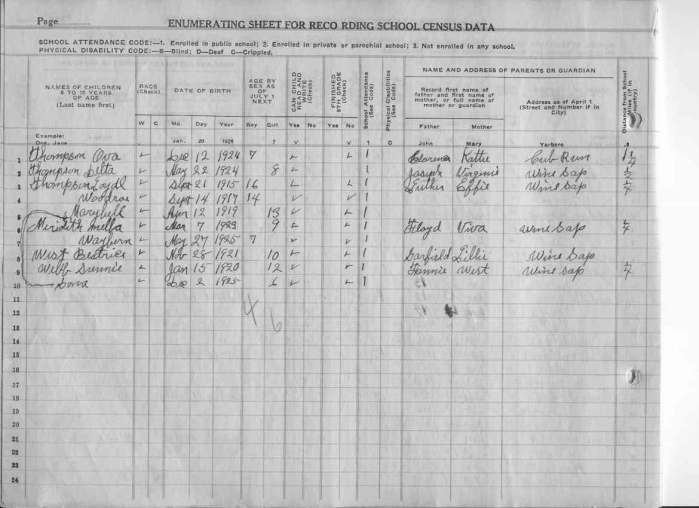 Page
ENUMERATING SHEET FOR RECORDING SCHOOL CENSUS DATA
SCHOOL ATTENDANCE CODE:—1. Enrolled in public school; 2. Enrolled in private or parochial school; 3. Not enrolled in any school.
PHYSICAL DISABILITY CODE:—B—Blind; D—Deaf C—Crippled.
NAMES OF CHILDREN 6 TO 18 YEARS OF AGE (Last name first)
RACE (Check)
W C
DATE OF BIRTH
Mo. Day Year
AGE BY SEX AS OF JULY 1 NEXT
Boy Girl
CAN CHILD READ AND WRITE (Check)
Yes No
FINISHED 8TH GRADE (Check)
Yes No
School Attendance (See Code)
Physical Disabilities (See Code)
NAME AND ADDRESS OF PARENTS OR GUARDIAN
Record first name of father and first name of mother, or full name of mother or guardian
Father Mother
Address as of April 1 (Street and Number if in City)
Distance from School
Example:
Doe, Jane Jan. 20 1928 7 V V 1 C John Mary Yarboro
1 Thompson Ova Dec 12 1924 7 1 Clarence Kattie Cub Run 1 1/2
2 Thompson Letta May 22 1924 8 1 Joseph Virginia Wine Sap 1/2
3 Thompson Loyd Sept 21 1915 16 1 Luther Effie Wine Sap 1/4
4 Woodrow Sept 14 1917 14 1
5 Marybell Apr 12 1919 13 1
6 Meredith Melba Mar 7 1923 9 1 Floyd Viva Wine Sap 1/4
7 Wayburn May 27 1925 7 1
8 West Beatrice Nov 28 1921 10 1 Garfield Lillie Wine Sap
9 Webb Sunnie Jan 15 1920 12 1 Fannie West Wine Sap 1/4
10 Dec 2 1925 6 1
11
12
13
14
15
16
17
18
19
20
21
22
23
24